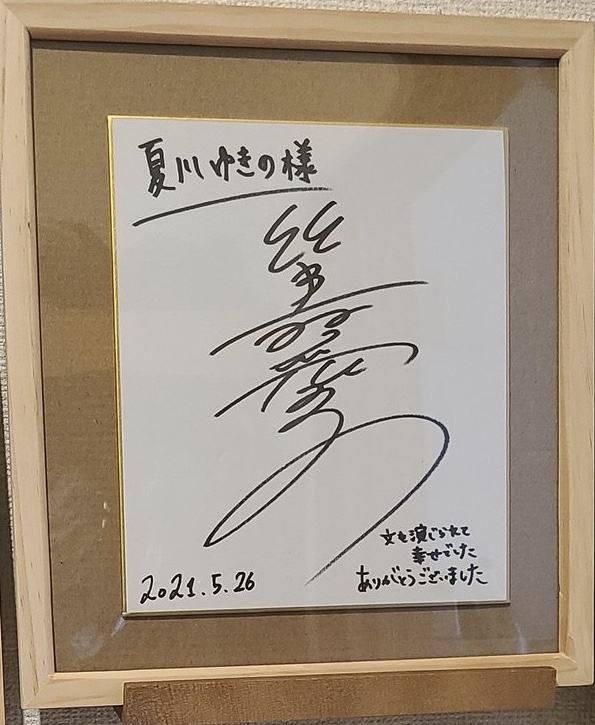 夏川ゆきの様
文を演じられて
幸せでした
ありがとうございました
2021.5.26